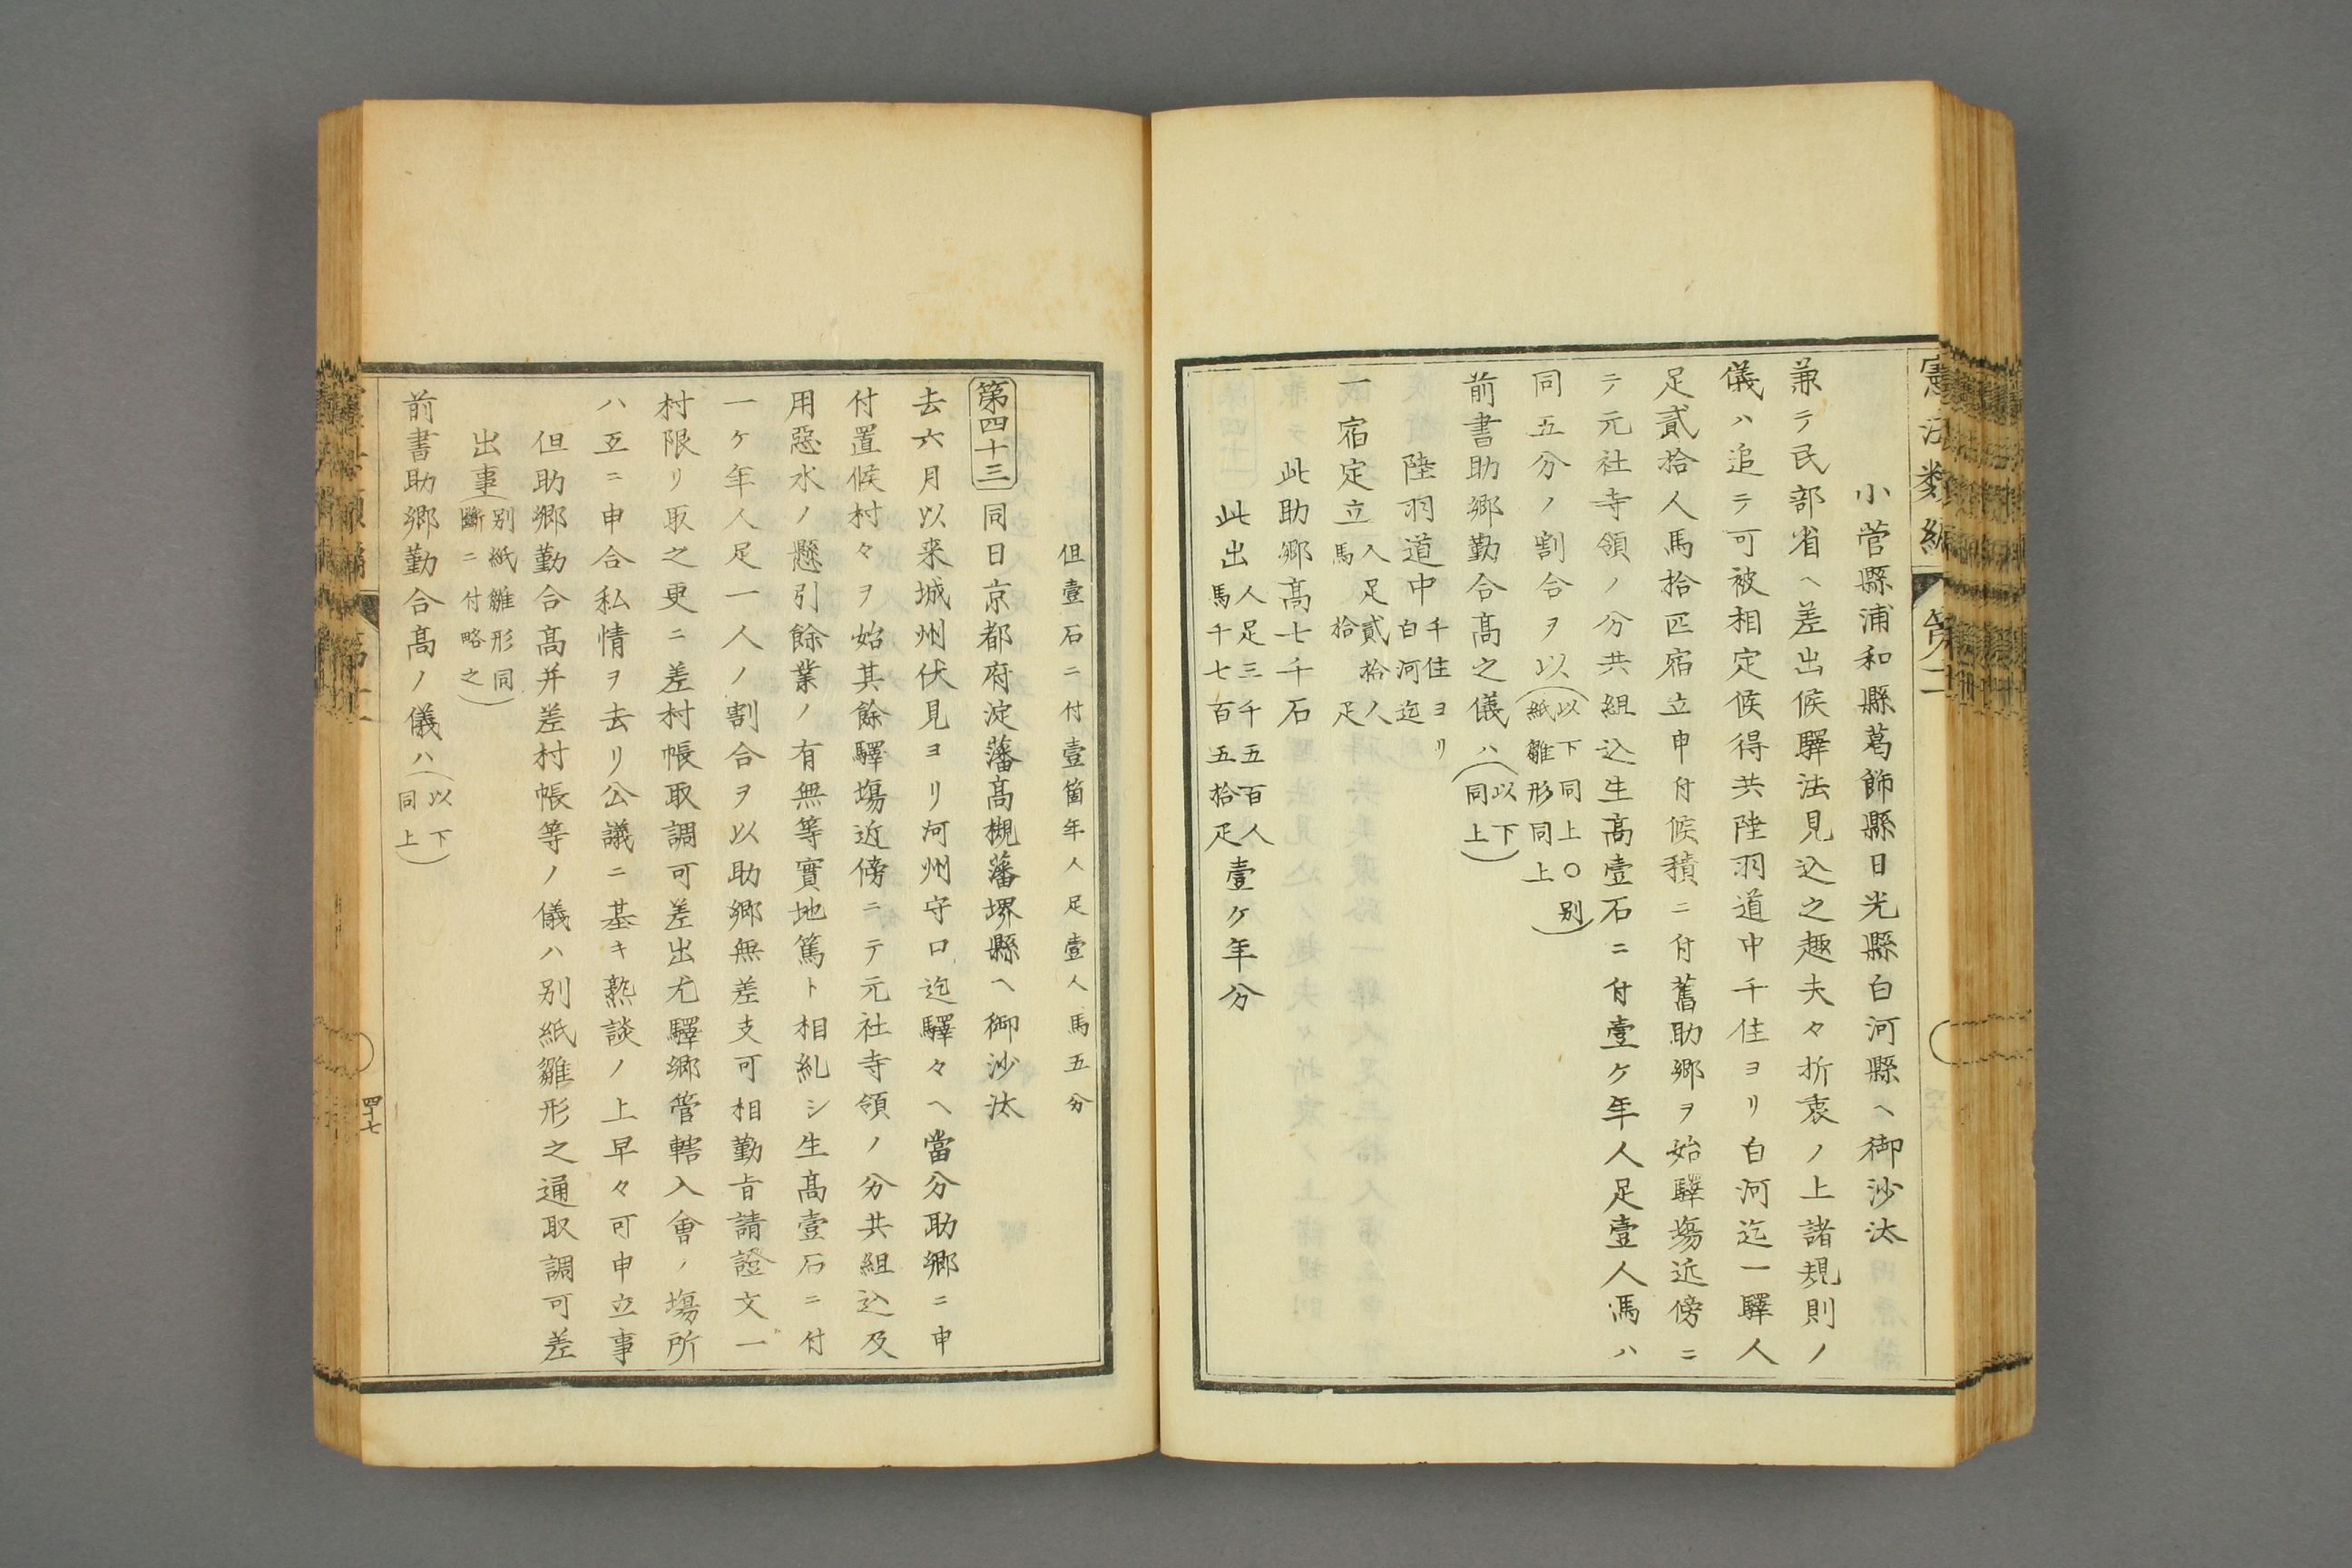 憲法類編
第二
小菅縣浦和縣葛飾縣日光縣白河縣ヘ御沙汰
兼テ民部省ヘ差出候驛法見込之趣夫々折衷ノ上諸規則ノ
儀ハ追テ可被相定候得共陸羽道中千住ヨリ白河迄一驛人
足貳拾人馬拾匹宿立申付候積ニ付舊助郷ヲ始驛塲近傍ニ
テ元社寺領ノ分共組込生髙壹石ニ付壹ケ年人足壹人馮ハ
同五分ノ割合ヲ以(以下同上○別紙雛形同上)
前書助郷勤合髙之儀ハ(以下同上)
陸羽道中千住ヨリ白河迄
一宿定立人足貳拾人馬拾疋
此助郷髙七千石
此出人足三千五百人馬千七百五拾疋壹ケ年分
但壹石ニ付壹箇年人足壹人馬五分
第四十三 同日京都府淀藩髙槻藩堺縣ヘ御沙汰
去六月以来城州伏見ヨリ河州守口迄驛々ヘ當分助郷ニ申
付置候村々ヲ始其餘驛塲近傍ニテ元社寺領ノ分共組込及
用惡水ノ懸引餘業ノ有無等實地篤ト相糺シ生髙壹石ニ付
一ケ年人足一人ノ割合ヲ以助郷無差支可相勤旨請證文一
村限リ取之更ニ差村帳取調可差出尤驛郷管轄入會ノ塲所
ハ互ニ申合私情ヲ去リ公議ニ基キ熟談ノ上早々可申立事
但助郷勤合髙并差村帳等ノ儀ハ別紙雛形之通取調可差
出事(別紙雛形同斷ニ付略之)
前書助郷勤合髙ノ儀ハ(以下同上)
四十七